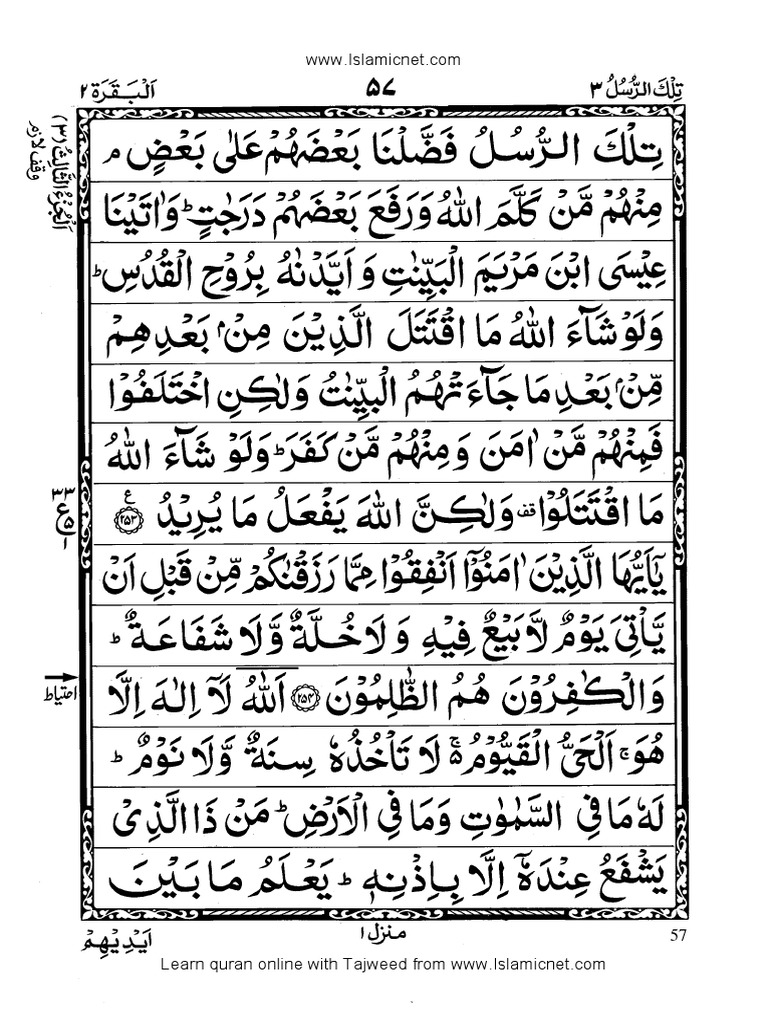 www.Islamicnet.com
تِلۡكَ الرُّسُلُ ٣
٥٧
اَلۡبَقَرَة ٢
اَلۡجُزۡءُ الثَّالِثُ (٣)
وقف لازم
تِلۡكَ الرُّسُلُ فَضَّلۡنَا بَعۡضَهُمۡ عَلٰى بَعۡضٍ‌ۘ
مِنۡهُمۡ مَّنۡ كَلَّمَ اللّٰهُ وَرَفَعَ بَعۡضَهُمۡ دَرَجٰتٍ‌ؕ وَاٰتَيۡنَا
عِيۡسَى ابۡنَ مَرۡيَمَ الۡبَيِّنٰتِ وَ اَيَّدۡنٰهُ بِرُوۡحِ الۡقُدُسِ‌ؕ
وَلَوۡ شَآءَ اللّٰهُ مَا اقۡتَتَلَ الَّذِيۡنَ مِنۡۢ بَعۡدِهِمۡ
مِّنۡۢ بَعۡدِ مَا جَآءَتۡهُمُ الۡبَيِّنٰتُ وَلٰكِنِ اخۡتَلَفُوۡا
فَمِنۡهُمۡ مَّنۡ اٰمَنَ وَمِنۡهُمۡ مَّنۡ كَفَرَ‌ؕ وَلَوۡ شَآءَ اللّٰهُ
مَا اقۡتَتَلُوۡا وَلٰكِنَّ اللّٰهَ يَفۡعَلُ مَا يُرِيۡدُ ع ٢٥٣
٣٣
ع
٥
١
يٰۤاَيُّهَا الَّذِيۡنَ اٰمَنُوۡۤا اَنۡفِقُوۡا مِمَّا رَزَقۡنٰكُمۡ مِّنۡ قَبۡلِ اَنۡ
يَّاۡتِىَ يَوۡمٌ لَّا بَيۡعٌ فِيۡهِ وَلَا خُلَّةٌ وَّلَا شَفَاعَةٌ ‌ؕ
وَالۡكٰفِرُوۡنَ هُمُ الظّٰلِمُوۡنَ ٢٥٤ اَللّٰهُ لَاۤ اِلٰهَ اِلَّا
احتیاط
هُوَ‌ۚ اَلۡحَىُّ الۡقَيُّوۡمُ ۚ لَا تَاۡخُذُهٗ سِنَةٌ وَّلَا نَوۡمٌ‌ؕ
لَهٗ مَا فِى السَّمٰوٰتِ وَمَا فِى الۡاَرۡضِ‌ؕ مَنۡ ذَا الَّذِىۡ
يَشۡفَعُ عِنۡدَهٗۤ اِلَّا بِاِذۡنِهٖ‌ؕ يَعۡلَمُ مَا بَيۡنَ
اَيۡدِيۡهِمۡ
منزل ١
57
Learn quran online with Tajweed from www.Islamicnet.com